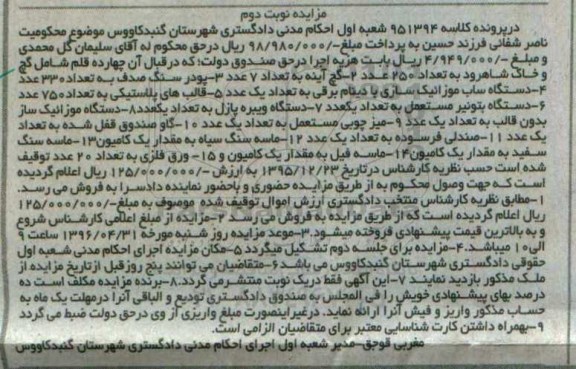 مزایده نوبت دوم
درپرونده کلاسه ۹۵۱۳۹۴ شعبه اول احکام مدنی دادگستری شهرستان گنبدکاووس موضوع محکومیت
ناصر شفائی فرزند حسین به پرداخت مبلغ-/۹۸/۹۸۰/۰۰۰ ریال درحق محکوم له آقای سلیمان گل محمدی
و مبلغ -/۴/۹۴۹/۰۰۰ ریال بابت هزینه اجرا درحق صندوق دولت؛ که درقبال آن چهارده قلم شامل گچ
و خاک شاهرود به تعداد ۲۵۰ عدد ۲-گچ آینه به تعداد ۷ عدد ۳-پودر سنگ صدف به تعداد ۳۳۰ عدد
۴-دستگاه ساب موزائیک سازی با دینام برقی به تعداد یک عدد ۵-قالب های پلاستیکی به تعداد ۷۵۰ عدد
۶-دستگاه بتونیر مستعمل به تعداد یکعدد ۷-دستگاه ویبره پازل به تعداد یکعدد ۸-دستگاه موزائیک ساز
بدون قالب به تعداد یک عدد ۹-میز چوبی مستعمل به تعداد یک عدد ۱۰-گاو صندوق قفل شده به تعداد
یک عدد ۱۱-صندلی فرسوده به تعداد یک عدد ۱۲-ماسه سنگ سیاه به مقدار یک کامیون ۱۳-ماسه سنگ
سفید به مقدار یک کامیون ۱۴-ماسه فیل به مقدار یک کامیون و ۱۵- ورق فلزی به تعداد ۲۰ عدد توقیف
شده است حسب نظریه کارشناس درتاریخ ۱۳۹۵/۱۲/۲۳ به ارزش -/۱۲۵/۰۰۰/۰۰۰ ریال اعلام گردیده
است که جهت وصول محکوم به از طریق مزایده حضوری و باحضور نماینده دادسرا به فروش می رسد.
۱-مطابق نظریه کارشناس منتخب دادگستری ارزش اموال توقیف شده موصوف به مبلغ-/۱۲۵/۰۰۰/۰۰۰
ریال اعلام گردیده است که از طریق مزایده به فروش می رسد ۲-مزایده از مبلغ اعلامی کارشناس شروع
و به بالاترین قیمت پیشنهادی فروخته میشود.۳-موعد مزایده روز شنبه مورخه ۱۳۹۶/۰۴/۳۱ ساعت ۹
الی ۱۰ میباشد.۴-مزایده برای جلسه دوم تشکیل میگردد ۵-مکان مزایده اجرای احکام مدنی شعبه اول
حقوقی دادگستری شهرستان گنبدکاووس می باشد ۶-متقاضیان می توانند پنج روز قبل از تاریخ مزایده از
ملک مذکور بازدید نمایند ۷-این آگهی فقط دریک نوبت منتشر می گردد.۸-برنده مزایده مکلف است ده
درصد بهای پیشنهادی خویش را فی المجلس به صندوق دادگستری تودیع و الباقی آنرا درمهلت یک ماه به
حساب مذکور واریز و فیش آنرا ارائه نماید. درغیراینصورت مبلغ واریزی از وی درحق دولت ضبط می گردد
۹-بهمراه داشتن کارت شناسایی معتبر برای متقاضیان الزامی است.
مغربی قوجق-مدیر شعبه اول اجرای احکام مدنی دادگستری شهرستان گنبدکاووس